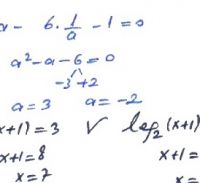 a - 6 · 1/a - 1 = 0
a² - a - 6 = 0
-3 +2
a = 3 a = -2
x+1) = 3 V log₂(x+1)
x+1 = 8 x+1 =
x = 7 x =